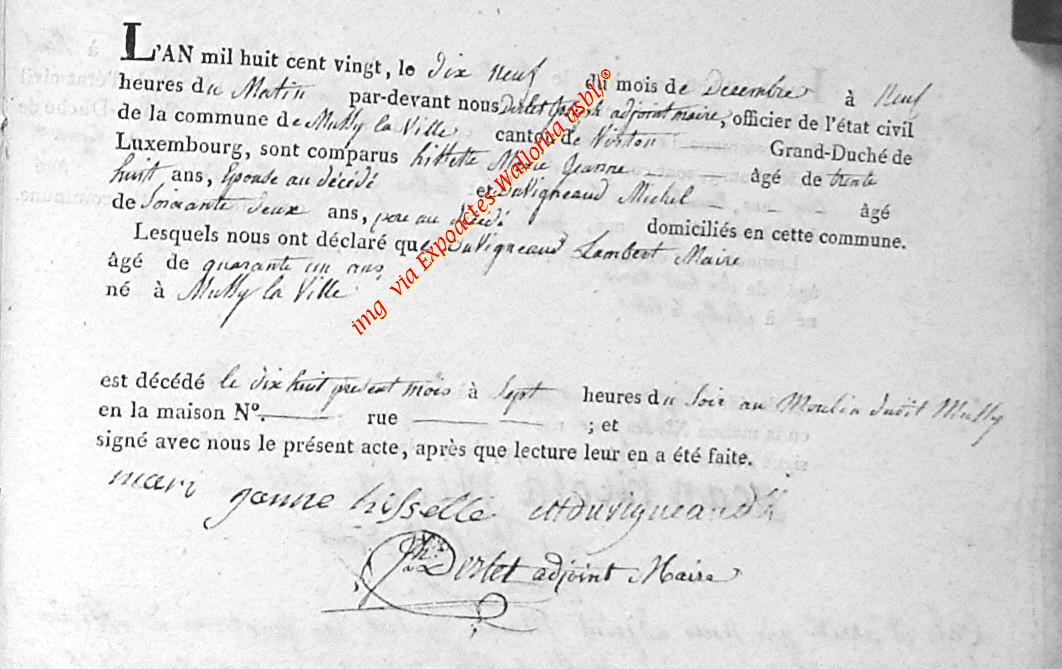 L'AN mil huit cent vingt, le dix neuf du mois de Decembre à Neuf
heures du Matin par-devant nous Derlet adjoint maire, officier de l'état civil
de la commune de Mussy la Ville canton de Virton Grand-Duché de
Luxembourg, sont comparus hissette Marie Jeanne âgé de trente
huit ans, Epouse au décédé et Duvigneaud Michel âgé
de Soixante deux ans, pere au décédé domiciliés en cette commune.
Lesquels nous ont déclaré que Duvigneaud Lambert Maire
âgé de quarante un ans
né à Mussy la Ville
est décédé le dix huit present mois à Sept heures du Soir au Moulin dudit Mussy
en la maison N°. rue ; et
signé avec nous le présent acte, après que lecture leur en a été faite.
mari janne hisselle
Derlet adjoint Maire
img via Expoactes Wallonia asbl®